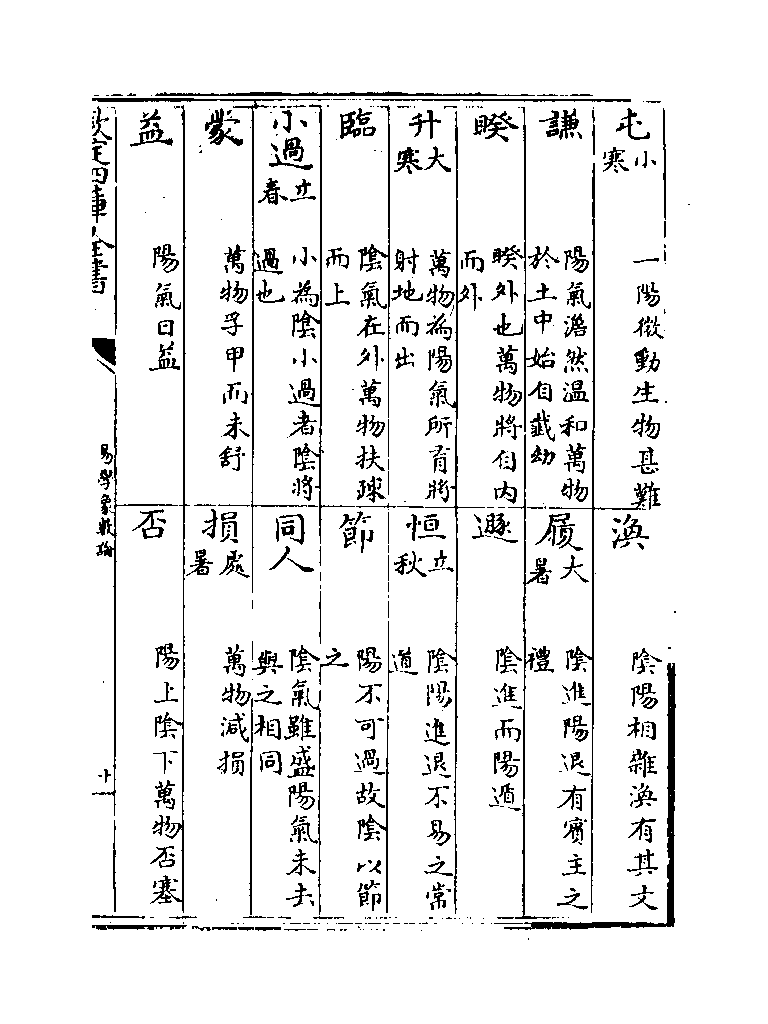 屯小寒
一陽微動生物甚難
渙
陰陽相雜渙有其文
謙
陽氣澹然温和萬物
於土中始自載幼
履大暑
陰進陽退有賓主之
禮
睽
睽外也萬物將自内
而外
遯
陰進而陽遁
升大寒
萬物為陽氣所育將
射地而出
恒立秋
陰陽進退不易之常
道
臨
陰氣在外萬物扶踈
而上
節
陽不可過故陰以節
之
小過立春
小為陰小過者陰將
過也
同人
陰氣雖盛陽氣未去
與之相同
蒙
萬物孚甲而未舒
損處暑
萬物減損
益
陽氣日益
否
陽上陰下萬物否塞
欽定四庫全書
易學象數論
十一